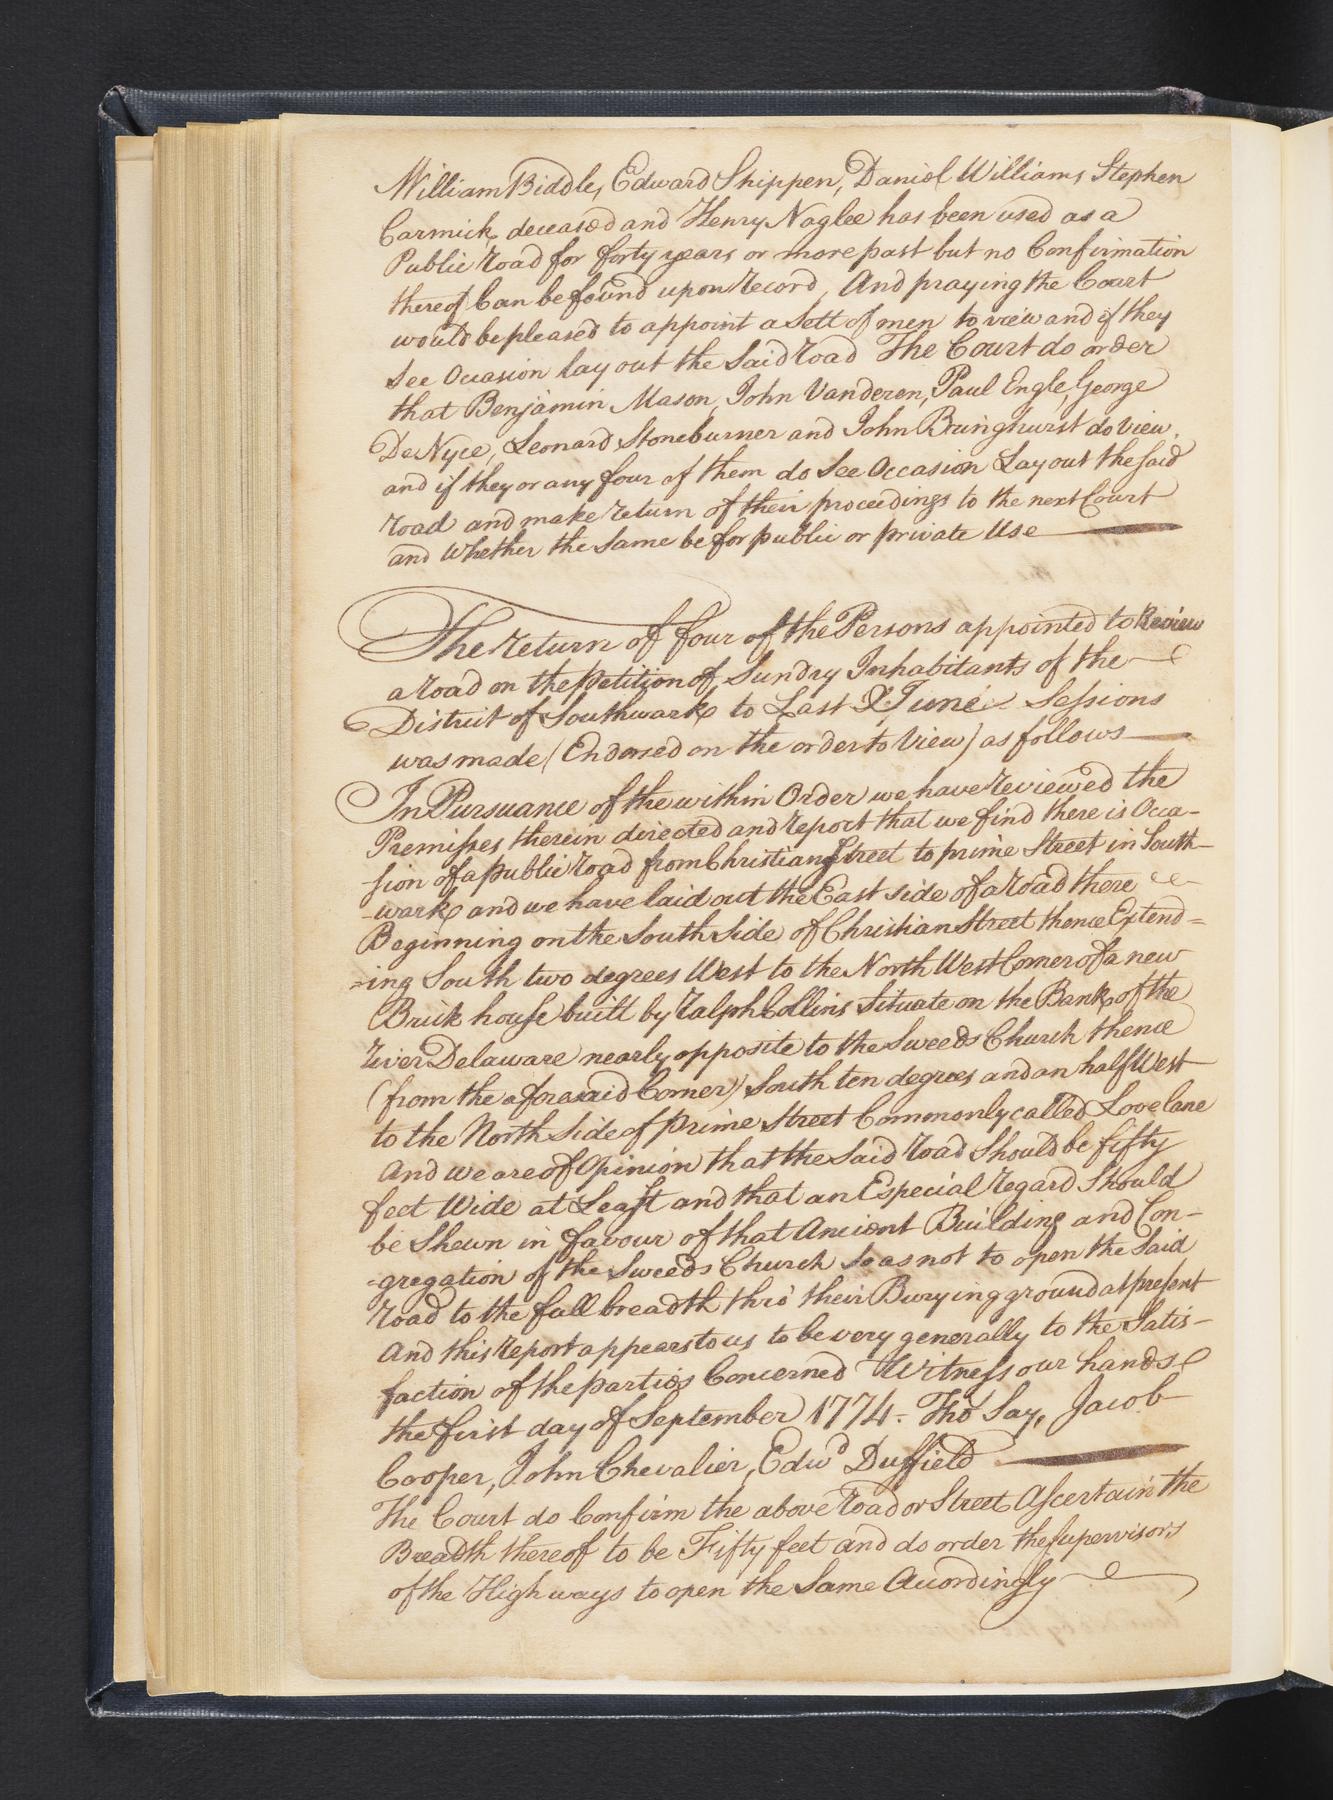 William Biddle, Edward Shippen, Daniel Williams, Stephen
Carmick, deceased and Henry Naglee has been used as a
Public road for forty years or more past but no Confirmation
thereof Can be found upon record, And praying the Court
would be pleased to appoint a Sett of men to view and if they
See Occasion lay out the Said road The Court do order
that Benjamin Mason, John Vanderen, Paul Engle, George
DeNyce, Leonard Stoneburner and John Bringhurst do view,
and if they or any four of them do See Occasion Lay out the said
road and make return of their proceedings to the next Court
and Whether the Same be for public or private Use
The return of four of the Persons appointed to Review
a road on the petition of Sundry Inhabitants of the
District of Southwark to Last June Sessions
was made (Endorsed on the order to View) as follows
In Pursuance of the within Order we have reviewed the
Premisses therein directed and report that we find there is Occa-
sion of a public road from Christian Street to prime Street in South-
-wark and we have laid out the East side of a road there
Beginning on the South Side of Christian Street thence Extend=
=ing South two degrees West to the North West Corner of a new
Brick house built by Ralph Collins Situate on the Bank of the
river Delaware nearly opposite to the Sweeds Church thence
(from the aforesaid Corner) South ten degrees and an half West
to the North Side of prime Street Commonly called Love lane
And we are of Opinion that the Said road Should be fifty
feet Wide at Least and that an Especial regard Should
be Shewn in favour of that Ancient Building and Con-
-gregation of the Sweeds Church so as not to open the Said
road to the full breadth thro' their Burying ground at present
And this report appears to us to be very generally to the Satis-
faction of the parties Concerned Witness our hands
the first day of September 1774. Tho.s Say, Jacob
Cooper, John Chevalier, Edw.d Duffield
The Court do Confirm the above road or Street Ascertain the
Breadth thereof to be Fifty feet and do order the supervisors
of the High ways to open the Same Accordingly